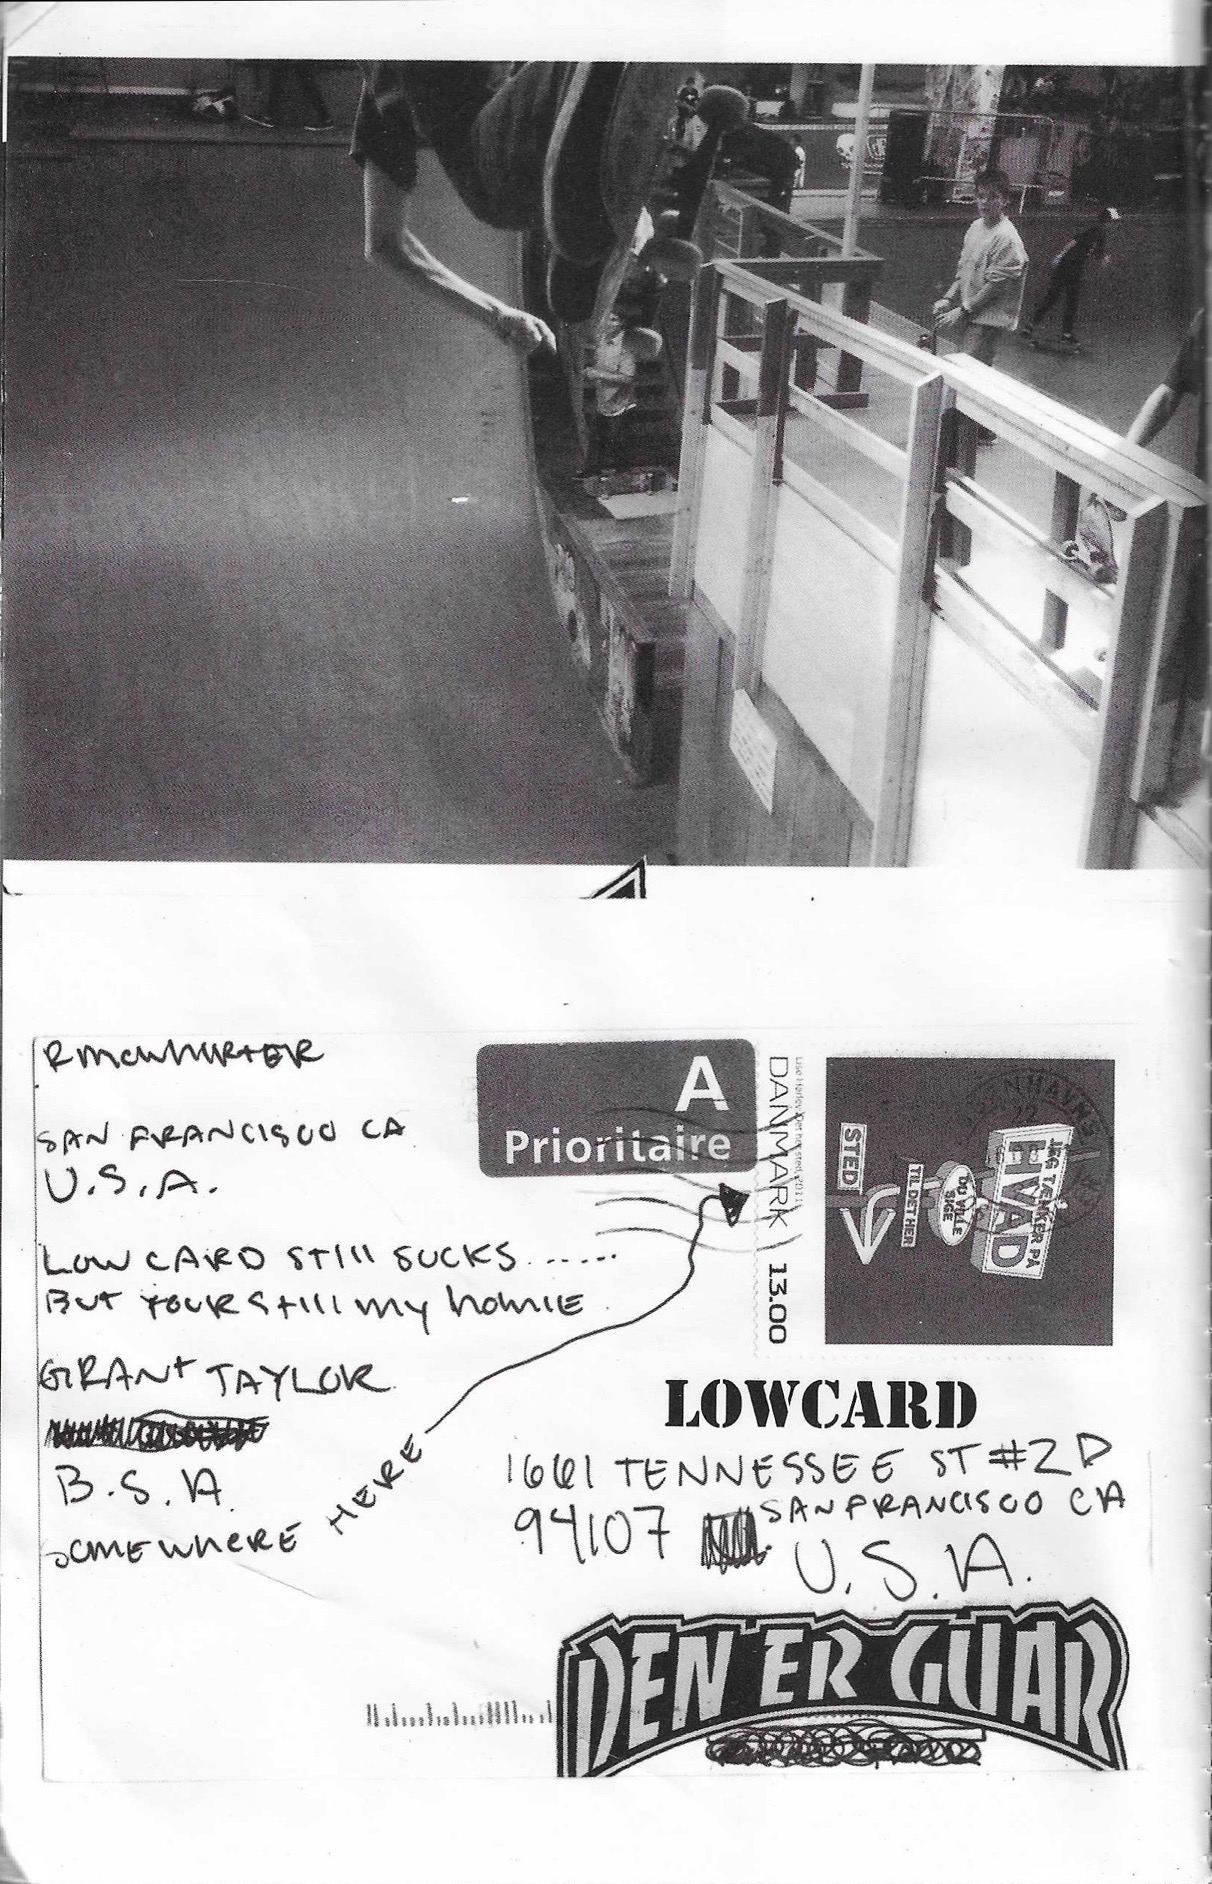 RMCWHURTER
SAN FRANCISCO CA
U.S.A.
LOW CARD STILL SUCKS ......
BUT YOUR STILL MY HOMIE
GRANT TAYLOR
B.S.A.
SOMEWHERE HERE
A
Prioritaire
DANMARK 13.00
JEG TÆNKER PÅ
HVAD
DU VILLE
SIGE
TIL DET HER
STED
LOWCARD
1661 TENNESSEE ST #2D
94107 SAN FRANCISCO CA
U.S.A.
DEN ER GUAR